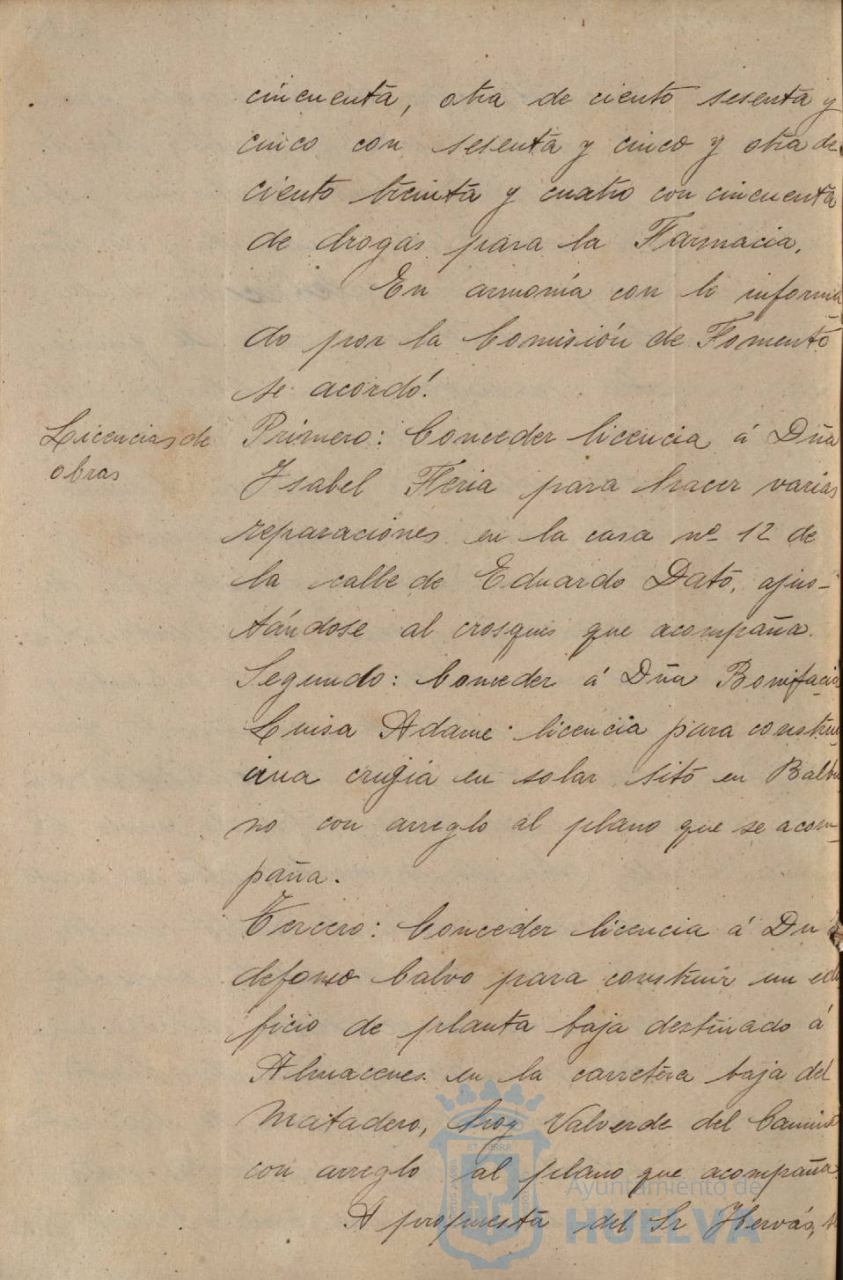 cincuenta, otra de ciento sesenta y
cinco con sesenta y cinco y otra de
ciento treinta y cuatro con cincuenta
de drogas para la Farmacia.
En armonía con lo informa-
do por la Comisión de Fomento
se acordó:
Licencias de
obras
Primero: Conceder licencia á Dña
Isabel Feria para hacer varias
reparaciones en la casa nº 12 de
la calle de Eduardo Dato, ajus-
tándose al crosquis que acompaña.
Segundo: Conceder á Dña Bonifacia
Luisa Adame licencia para construir
una crujia en solar sito en Balbi
no con arreglo al plano que se acom-
paña.
Tercero: Conceder licencia á Dn
defonso Calvo para construir un edi
ficio de planta baja destinado á
Almacenes en la carretera baja del
Matadero, hoy Valverde del Camino
con arreglo al plano que acompaña.
A propuesta del Sr Hervás,
Ayuntamiento de
HUELVA